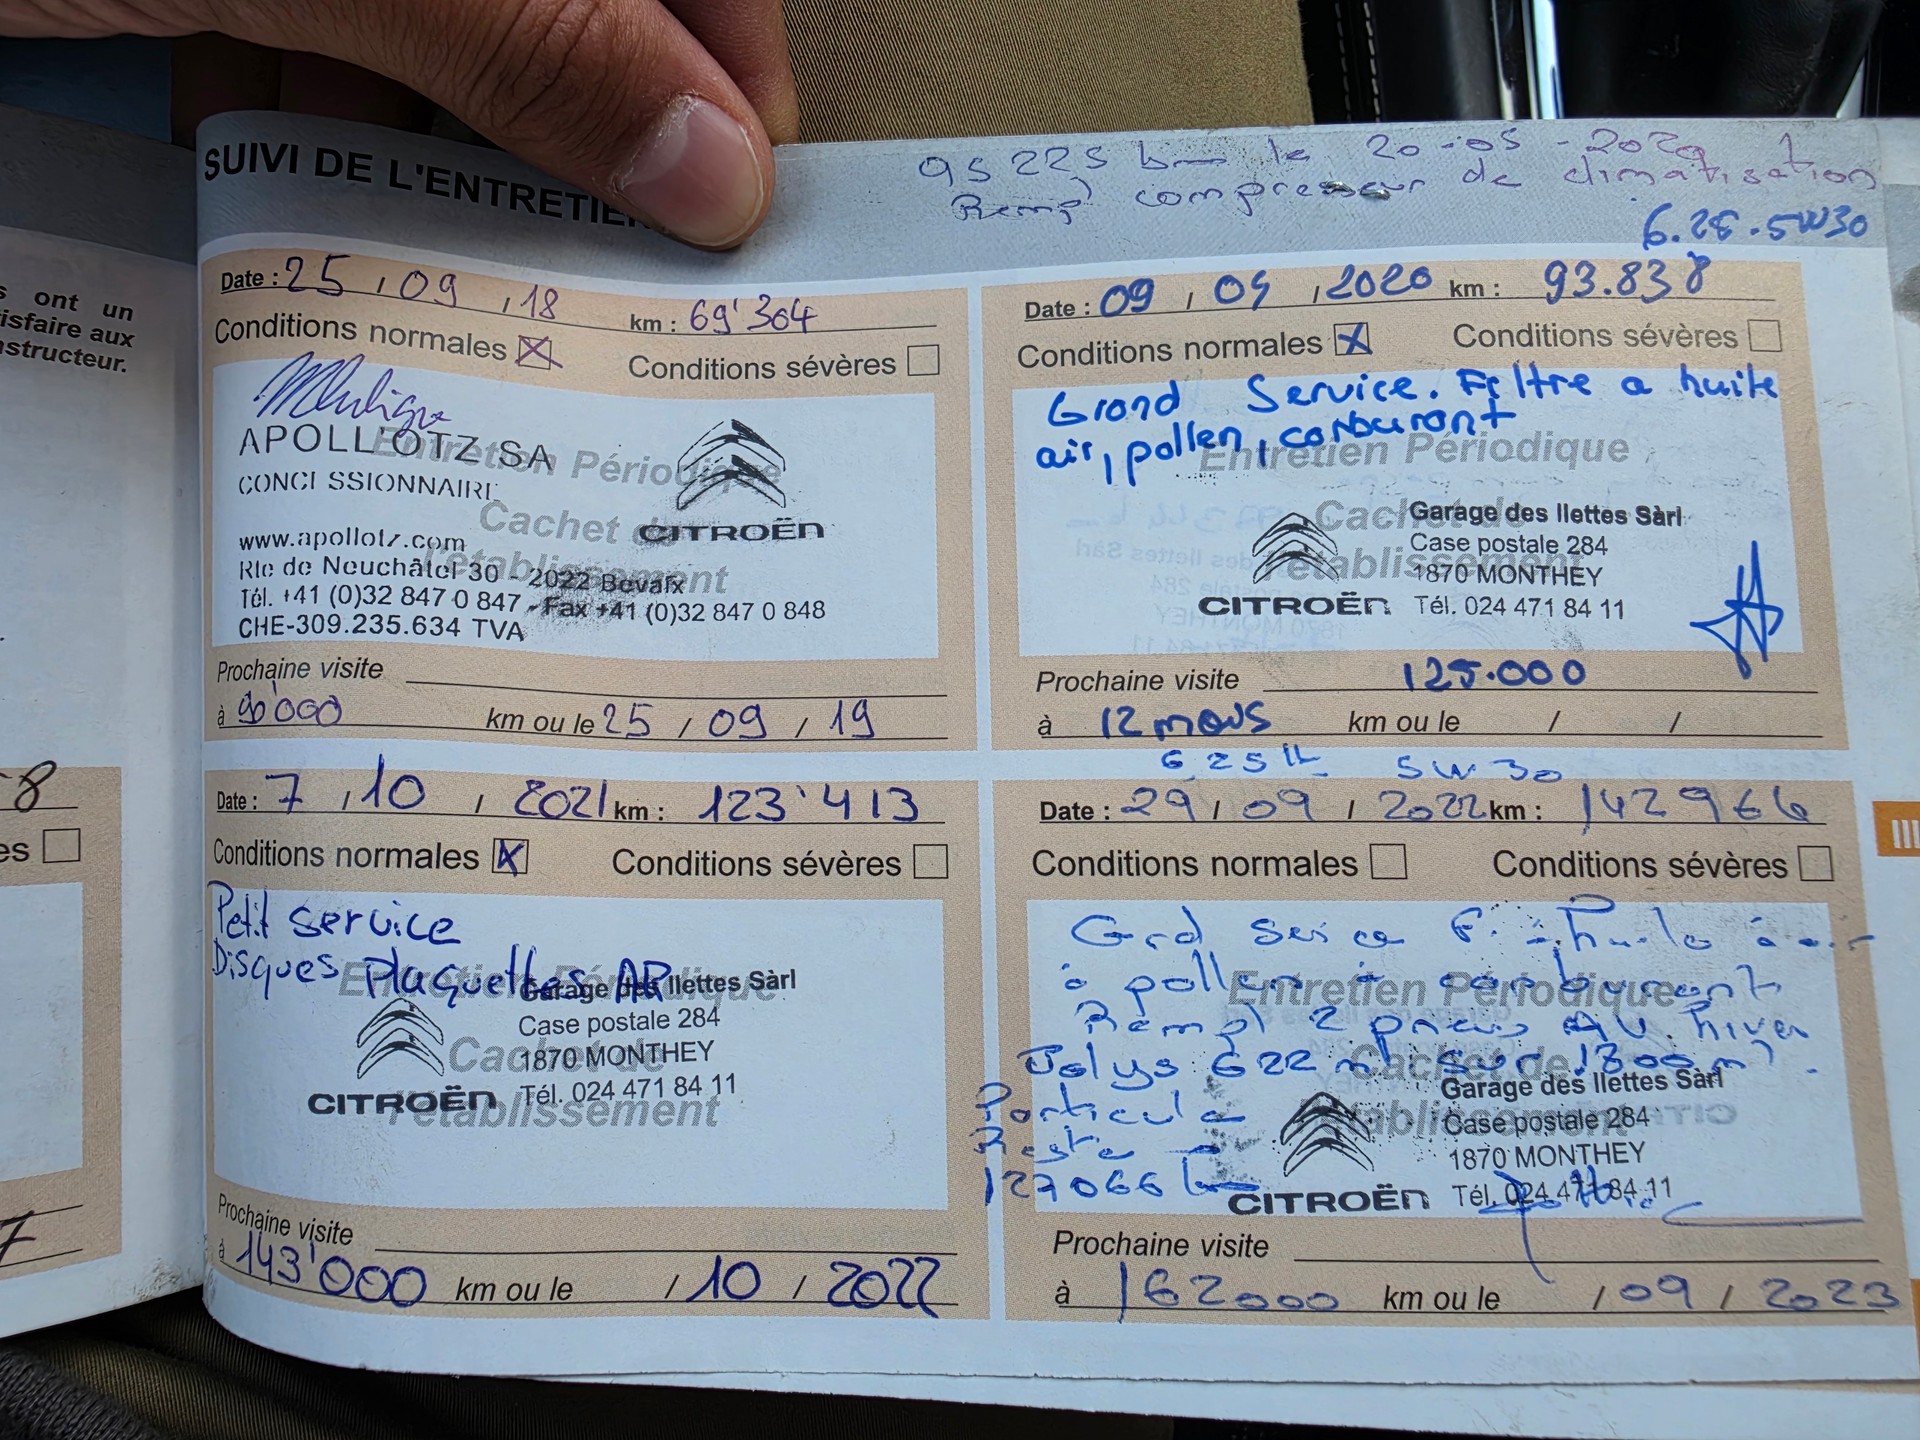 s ont un
isfaire aux
nstructeur.
8
es
7
SUIVI DE L'ENTRETIEN
95225 km le 20-05-2020
Remp compresseur de climatisation
6.25.5W30
Date : 25 / 09 / 18 km : 69'304
Conditions normales Conditions sévères
APOLL'OTZ SA
CONCESSIONNAIRE
Entretien Périodique
Cachet de
l'établissement
CITROËN
www.apollotz.com
Rte de Neuchâtel 30 - 2022 Bevaix
Tél. +41 (0)32 847 0 847 - Fax +41 (0)32 847 0 848
CHE-309.235.634 TVA
Prochaine visite
à 90'000 km ou le 25 / 09 / 19
Date : 09 / 04 / 2020 km : 93.838
Conditions normales Conditions sévères
Grand Service. Filtre a huile
air, pollen, carburant
Entretien Périodique
Cachet de
l'établissement
Garage des Ilettes Sàrl
Case postale 284
1870 MONTHEY
CITROËN Tél. 024 471 84 11
Prochaine visite 125.000
à 12 mois km ou le / /
Date : 7 / 10 / 2021 km : 123'413
Conditions normales Conditions sévères
Petit service
Disques Plaquettes AR
Entretien Périodique
Cachet de
l'établissement
Garage des Ilettes Sàrl
Case postale 284
1870 MONTHEY
CITROËN Tél. 024 471 84 11
Prochaine visite
à 143'000 km ou le / 10 / 2022
6.25 lt 5W30
Date : 29 / 09 / 2022 km : 142966
Conditions normales Conditions sévères
Grd Service F. à huile à air
à pollen à carburant
Rempl 2 pneus AV. hiver
622 sur 1300
Particule
Reste
127066 km
Entretien Périodique
Cachet de
l'établissement
Garage des Ilettes Sàrl
Case postale 284
1870 MONTHEY
CITROËN Tél. 024 471 84 11
Prochaine visite
à 162000 km ou le / 09 / 2023
III